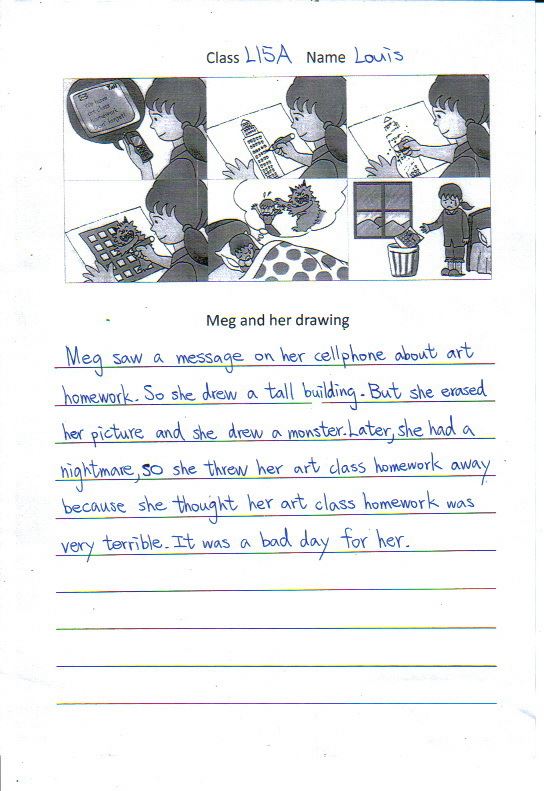 Class L15A Name Louis
Meg and her drawing
Meg saw a message on her cellphone about art
homework. So she drew a tall building. But she erased
her picture and she drew a monster. Later, she had a
nightmare, so she threw her art class homework away
because she thought her art class homework was
very terrible. It was a bad day for her.